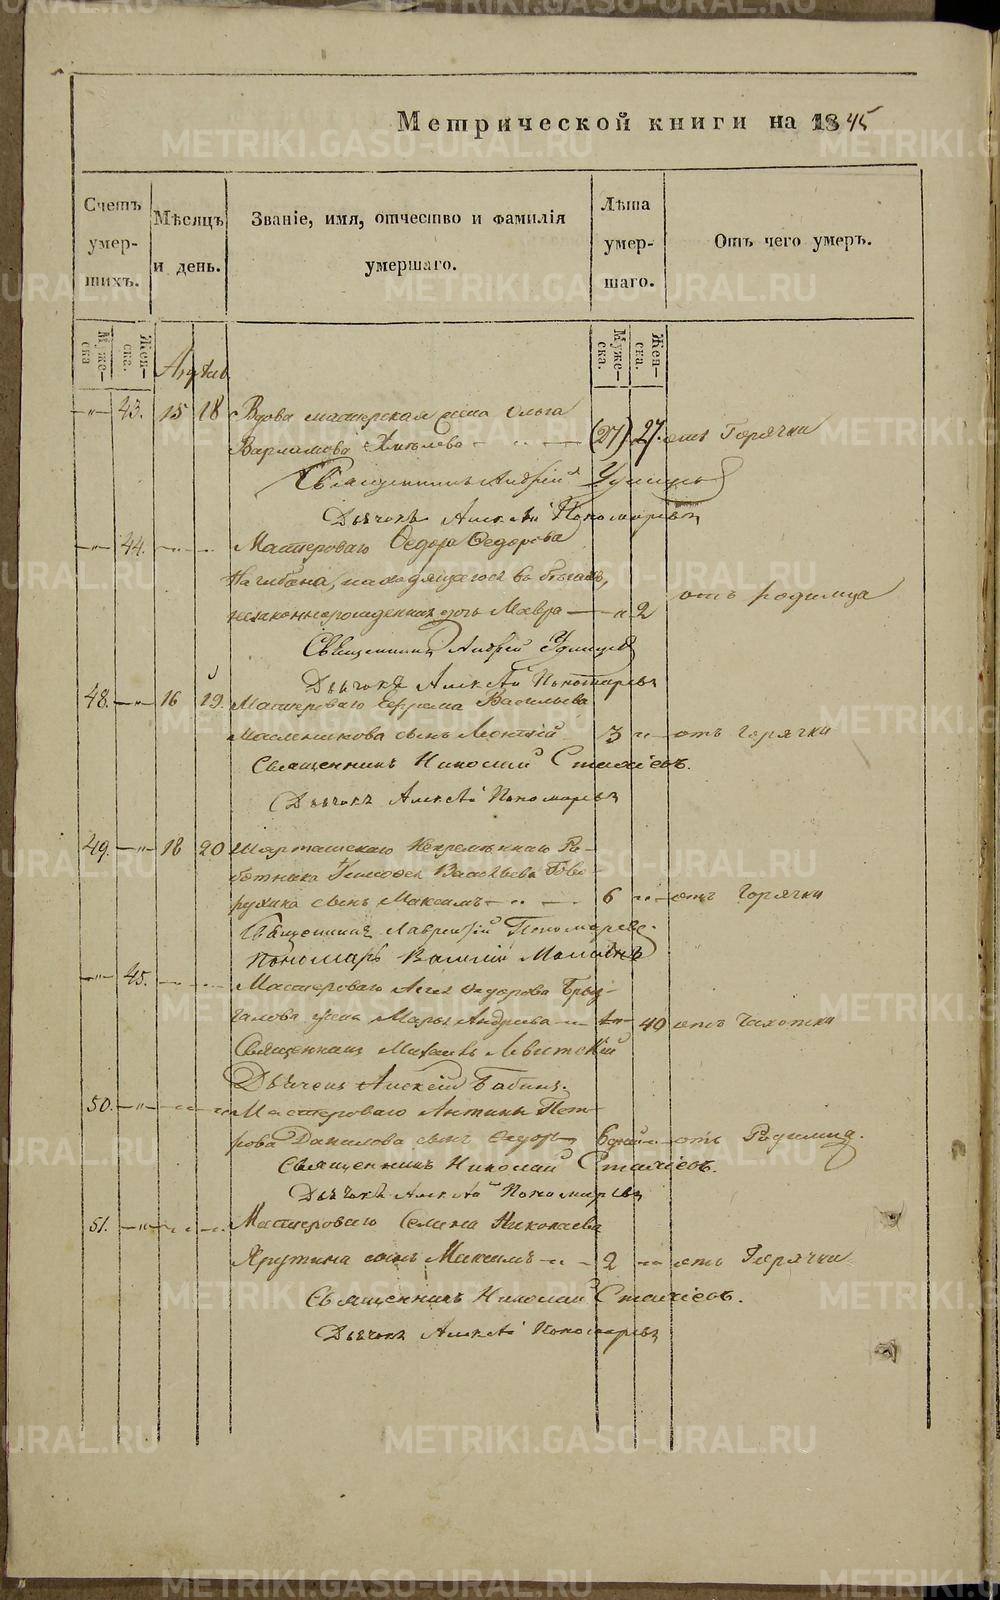 METRIKI.GASO-URAL.RU
Метрической книги на 1845
Счетъ умер-шихъ.
Мѣсяцъ и день.
Званіе, имя, отчество и фамилія умершаго.
Лѣта умер-шаго.
Отъ чего умеръ.
Муже-ска
Жен-ска.
Муже-ска.
Жен-ска.
-"- 43. 15 18 Вдова мастерская жена Ольга
Варламова (27) 27. отъ Горячки
Священникъ Андрей Удинцевъ
Дьячокъ Алексѣй Пономаревъ
-"- 44. Мастероваго Ѳедора Ѳедорова
Нагибина, находящагося въ бѣгахъ,
незаконнорожденная дочь Мавра -"- 2 отъ родимца
Священникъ Андрей Удинцевъ
Дьячокъ Алексѣй Пономаревъ
48. -"- 16 19. Мастероваго Ефрема Васильева
Масленикова сынъ Леонтій 3 -"- отъ горячки
Священникъ Николай
Дьячокъ Алексѣй Пономаревъ
49. -"- 18 20 Шарташскаго Непремѣннаго Ра-
ботника Тимофея Васильева Гово-
рухина сынъ Максимъ 6 -"- отъ Горячки
Священникъ Лаврентій Пономаревъ.
Пономарь
-"- 45. Мастероваго Ѳедорова Брыз-
галова жена Марья Андреева -"- 40 отъ Чахотки
Священникъ Михаилъ Левитскій
Дьячокъ Алексѣй Бабинъ.
50. -"- Мастероваго Антипы Пет-
рова Данилова сынъ Ѳедоръ 6 дней -"- отъ Родимца.
Священникъ Николай
Дьячокъ Алексѣй Пономаревъ
51. -"- Мастероваго Семена Николаева
сынъ Максимъ -"- 2 -"- отъ Горячки
Священникъ Николай
Дьячокъ Алексѣй Пономаревъ